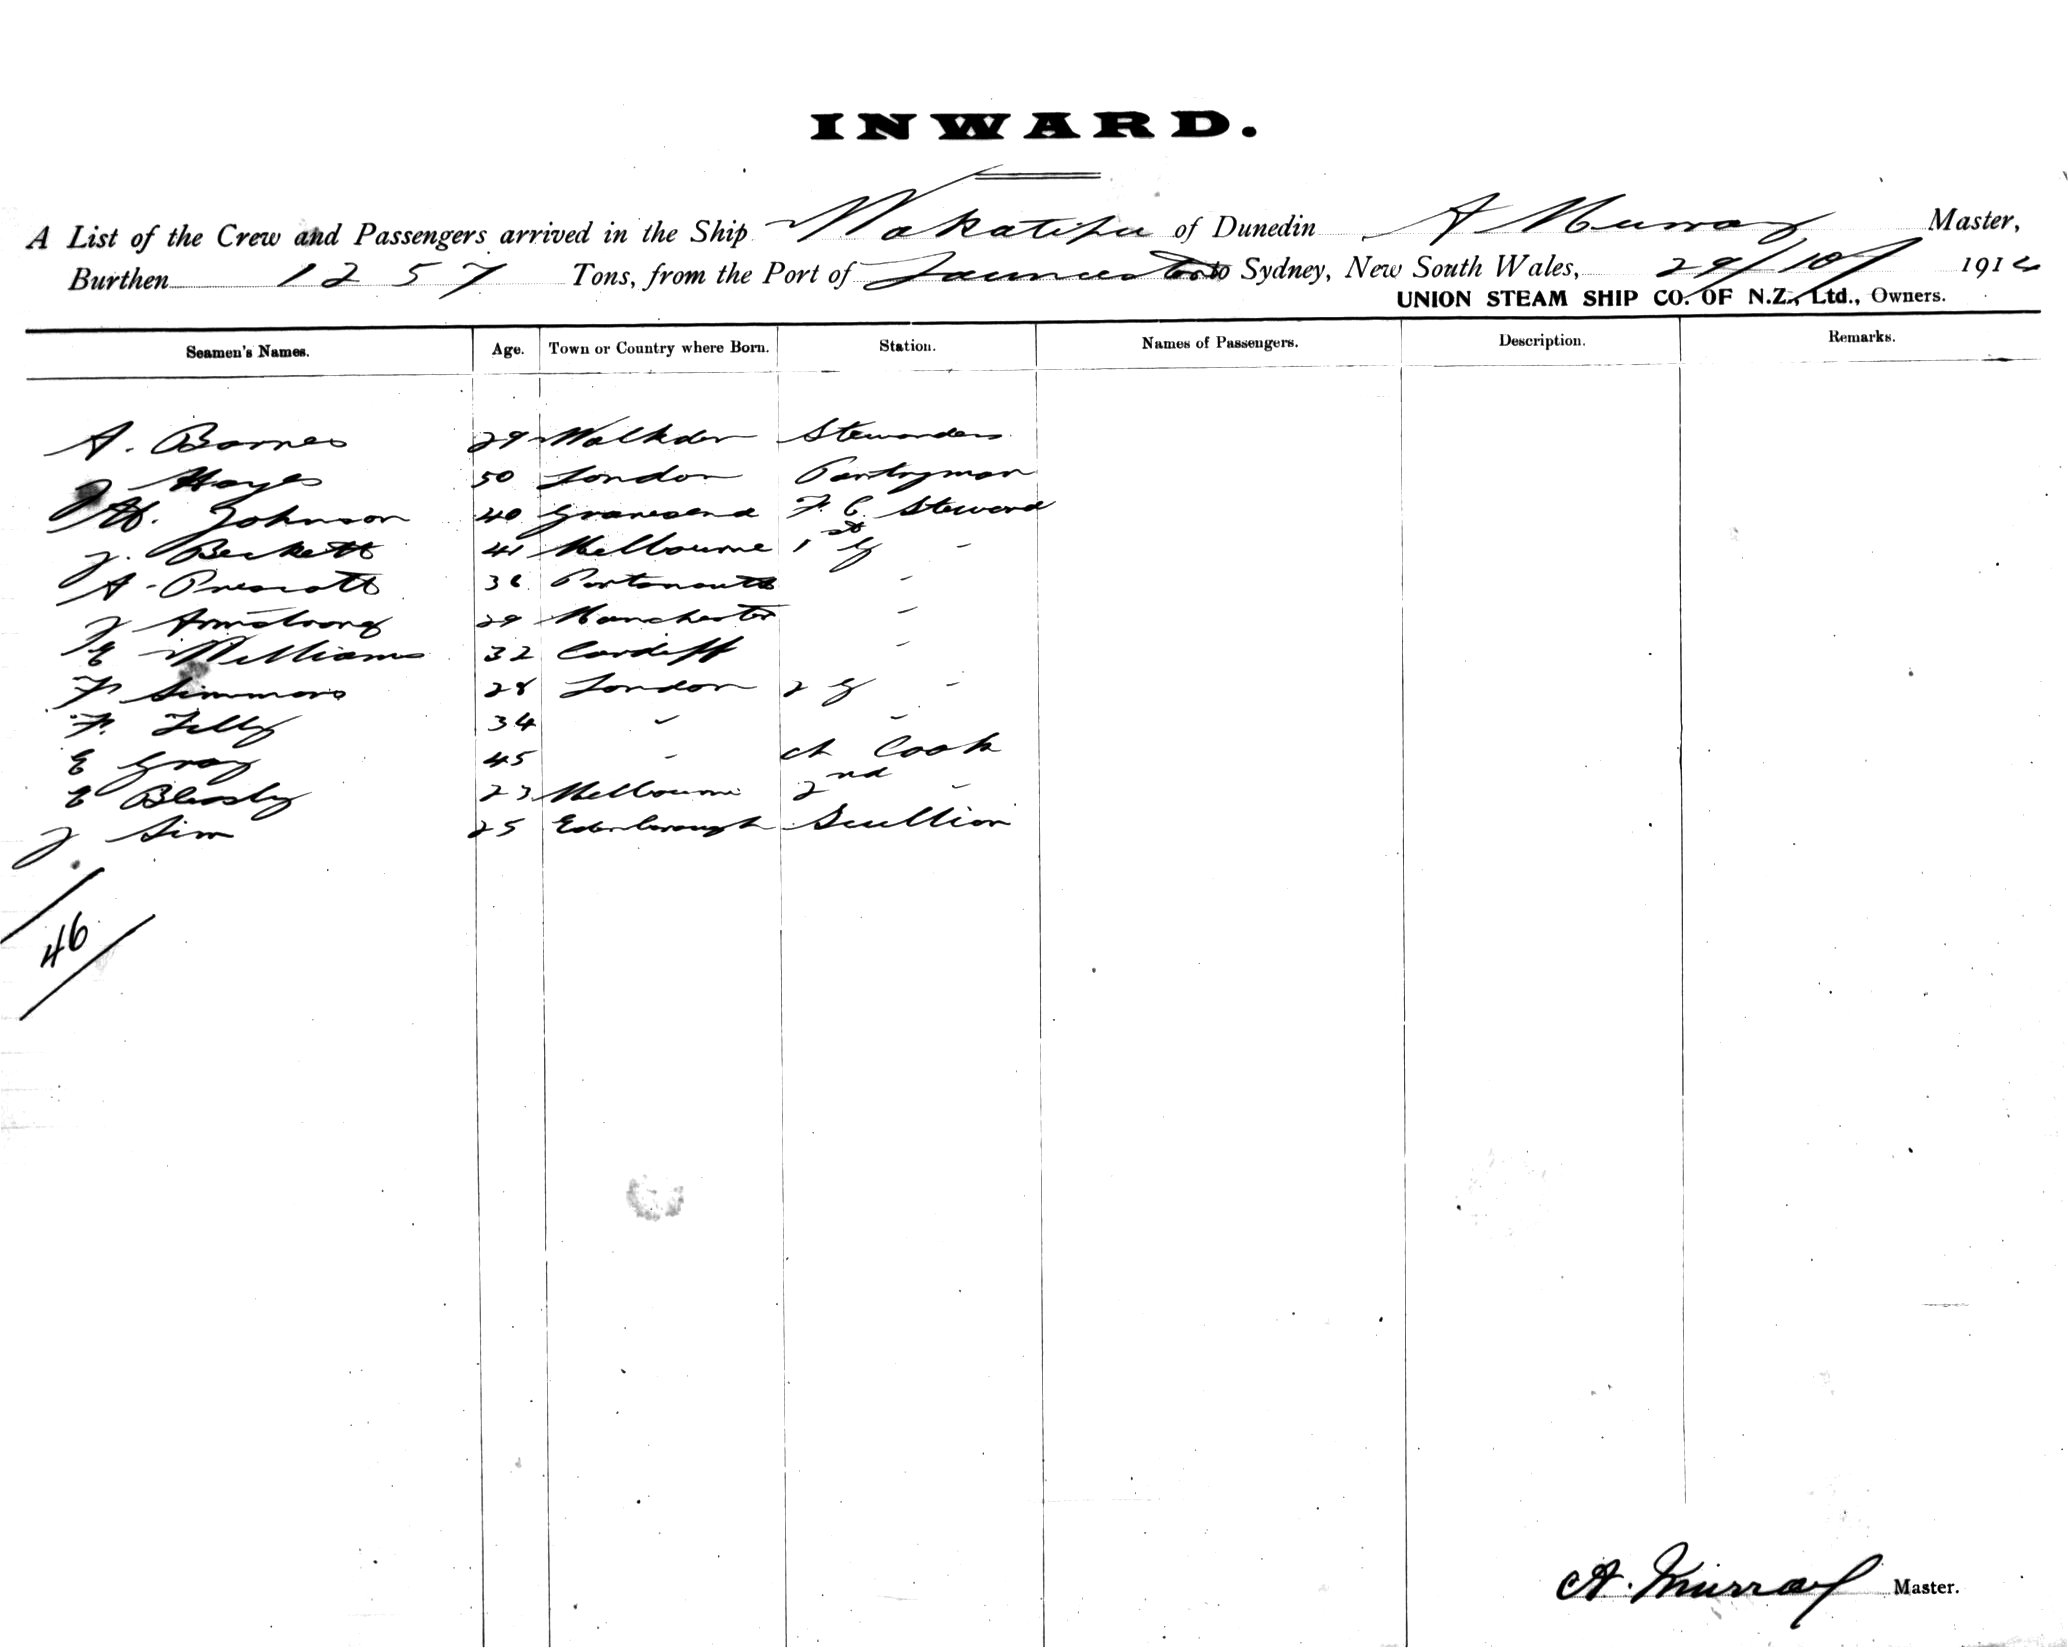 INWARD.
A List of the Crew and Passengers arrived in the Ship Wakatipu of Dunedin A Murray Master,
Burthen 1257 Tons, from the Port of Launceston to Sydney, New South Wales, 29/10/ 1914
UNION STEAM SHIP CO. OF N.Z., Ltd., Owners.
Seamen's Names. Age. Town or Country where Born. Station. Names of Passengers. Description. Remarks.
A. Barnes 29 Stewardess
J Hayes 50 London Pantryman
H. Johnson 40 Gravesend F. C. Steward
J. Beckett 41 Melbourne 1st "
A. Prescott 36 Portsmouth "
J Armstrong 29 Manchester "
E Williams 32 Cardiff "
F Simmons 28 London 2 "
F. Tilly 34 " "
E Gray 45 " Ch Cook
E 23 Melbourne 2nd "
J Sim 25 Edenborough Scullion
46
A. Murray Master.